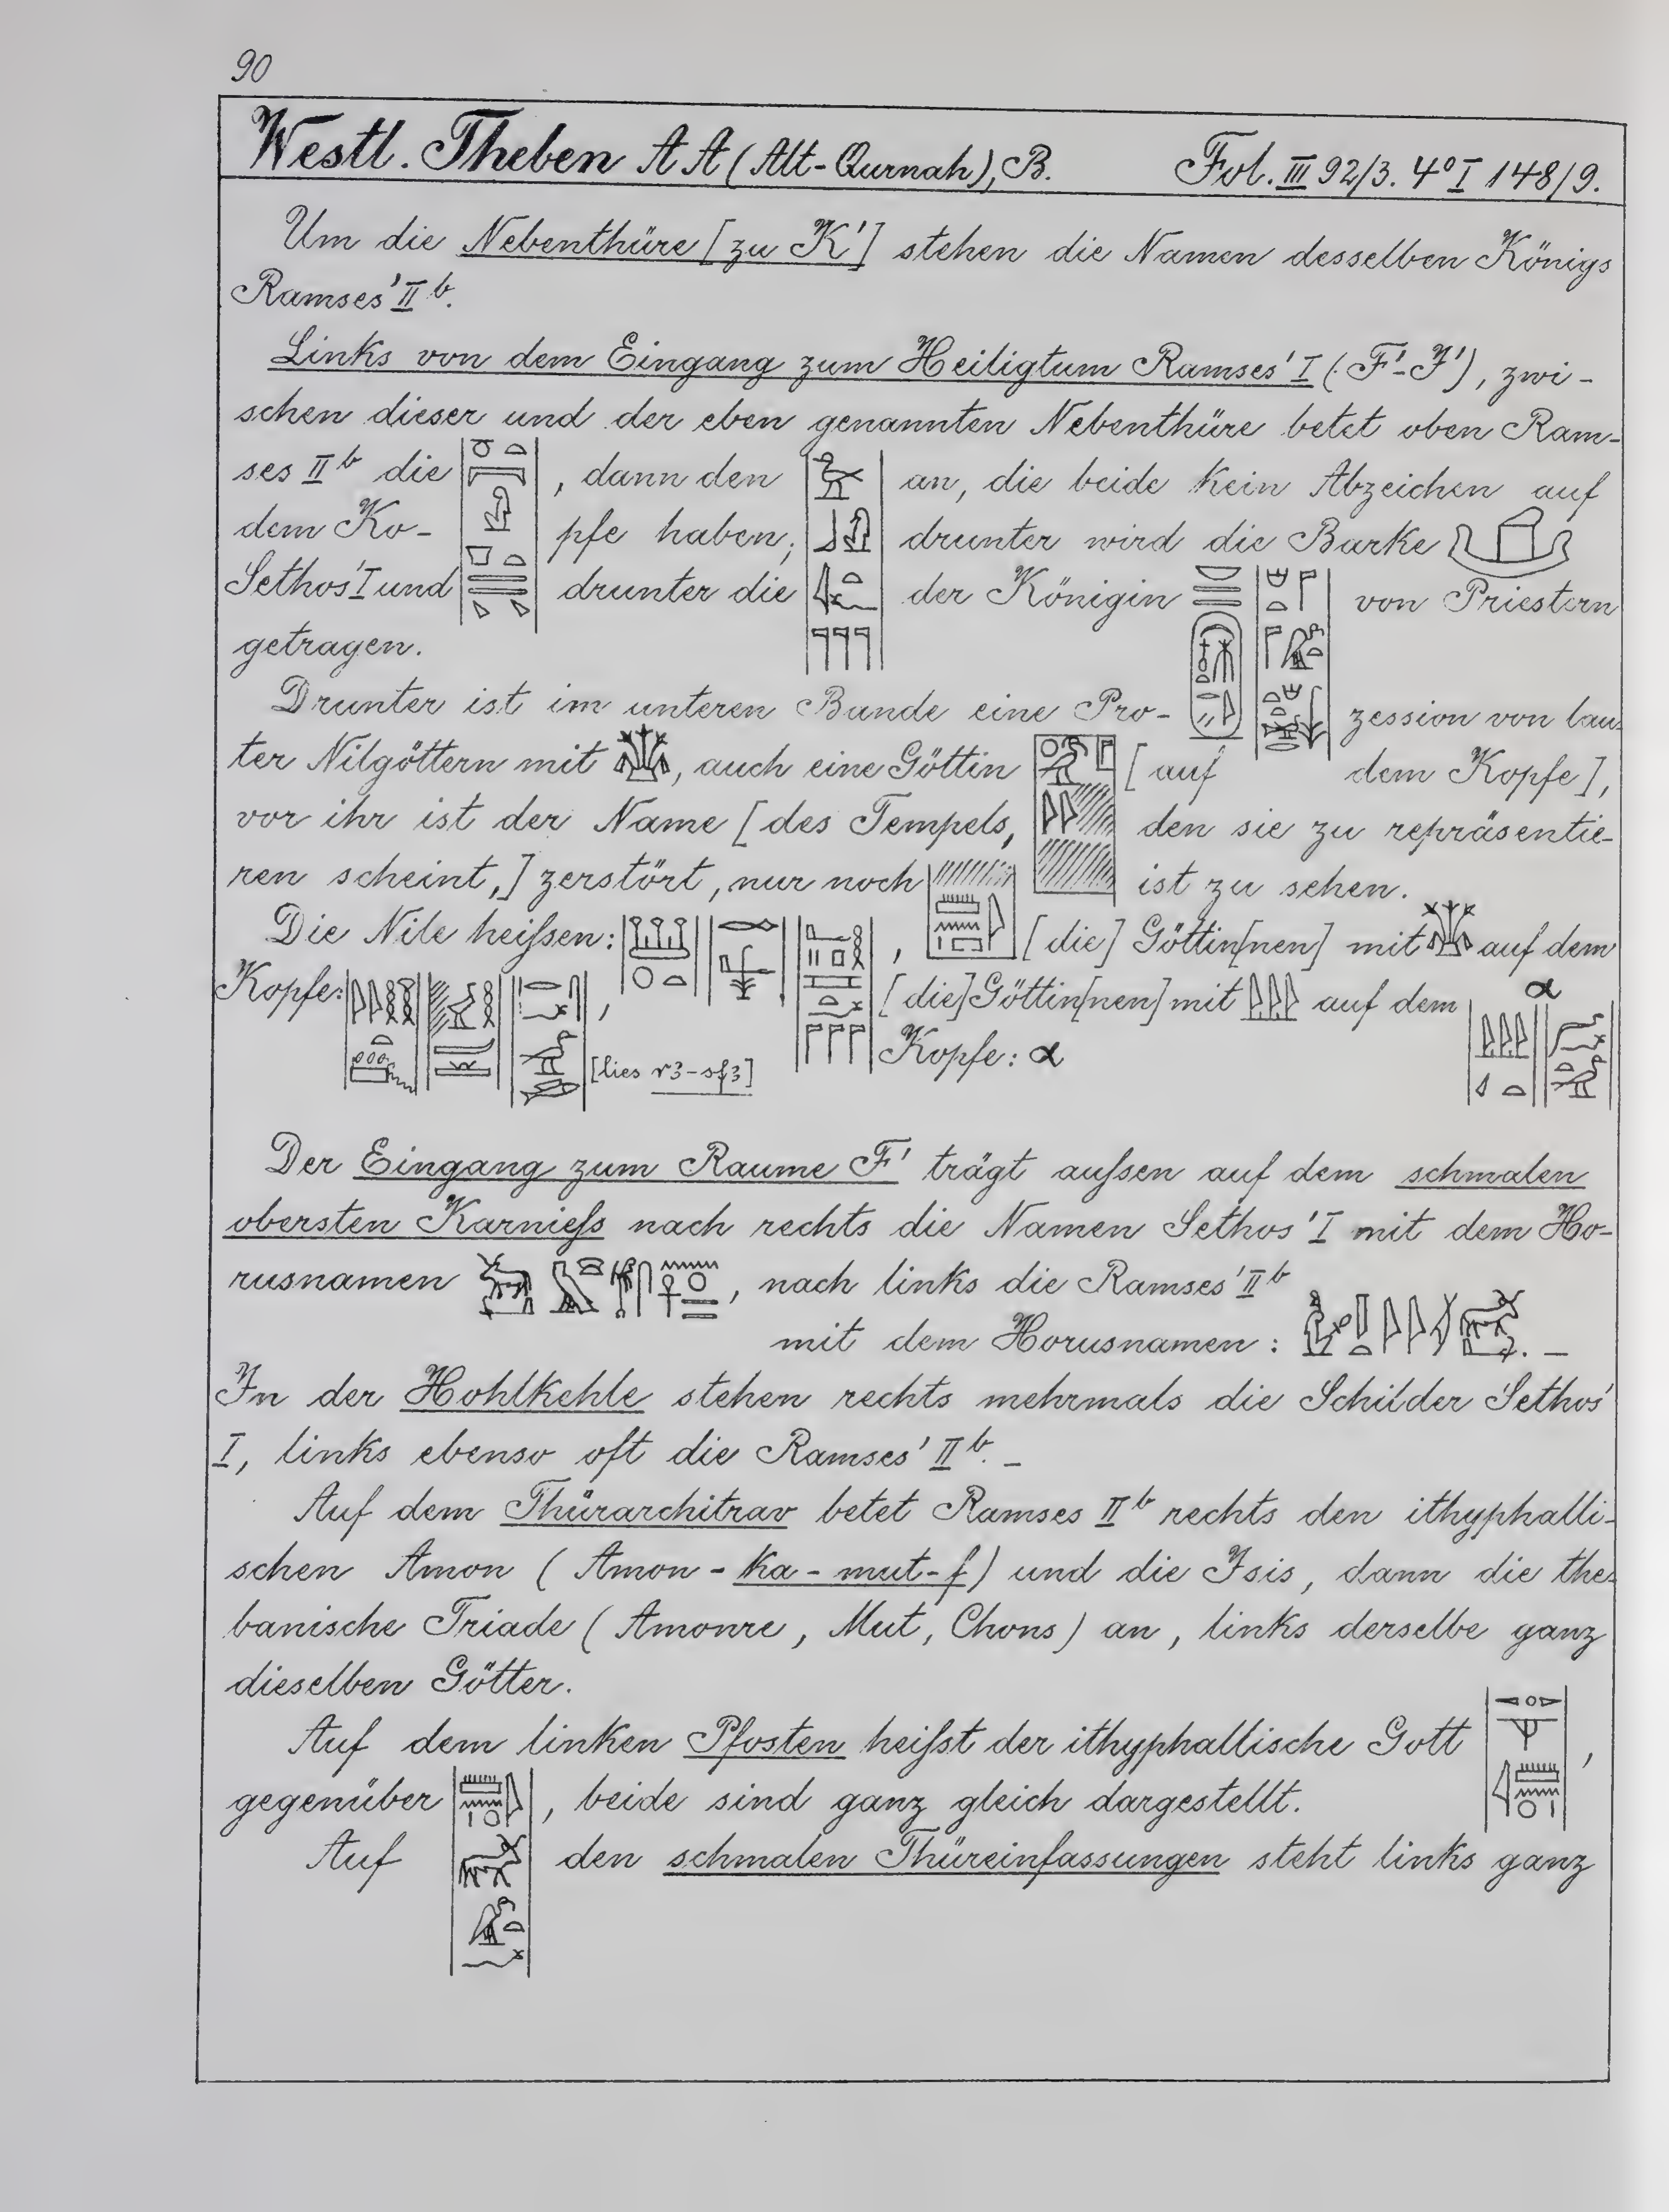 90
Westl. Theben A A (Alt-Qurnah), B. Fol. III 92/3. 4º I 148/9.
Um die Nebenthüre [zu K'] stehen die Namen desselben Königs
Ramses' II b.
Links von dem Eingang zum Heiligtum Ramses' I (F'-J'), zwi-
schen dieser und der eben genannten Nebenthüre betet oben Ram-
ses II b die , dann den an, die beide kein Abzeichen auf
dem Ko- pfe haben; drunter wird die Barke
Sethos' I und drunter die der Königin von Priestern
getragen.
Drunter ist im unteren Bande eine Pro- zession von lau-
ter Nilgöttern mit , auch eine Göttin [auf dem Kopfe],
vor ihr ist der Name [des Tempels, den sie zu repräsentie-
ren scheint,] zerstört, nur noch ist zu sehen.
Die Nile heißen: , [die] Göttin[nen] mit auf dem
Kopfe: , [die] Göttin[nen] mit auf dem α
[lies r3-sf3] Kopfe: α
Der Eingang zum Raume F' trägt außen auf dem schmalen
obersten Karnieß nach rechts die Namen Sethos' I mit dem Ho-
rusnamen , nach links die Ramses' II b
mit dem Horusnamen: . –
In der Hohlkehle stehen rechts mehrmals die Schilder Sethos'
I, links ebenso oft die Ramses' II b. –
Auf dem Thürarchitrav betet Ramses II b rechts den ithyphalli-
schen Amon (Amon-ka-mut-f) und die Isis, dann die the-
banische Triade (Amonre, Mut, Chons) an, links derselbe ganz
dieselben Götter.
Auf dem linken Pfosten heißt der ithyphallische Gott ,
gegenüber , beide sind ganz gleich dargestellt.
Auf den schmalen Thüreinfassungen steht links ganz